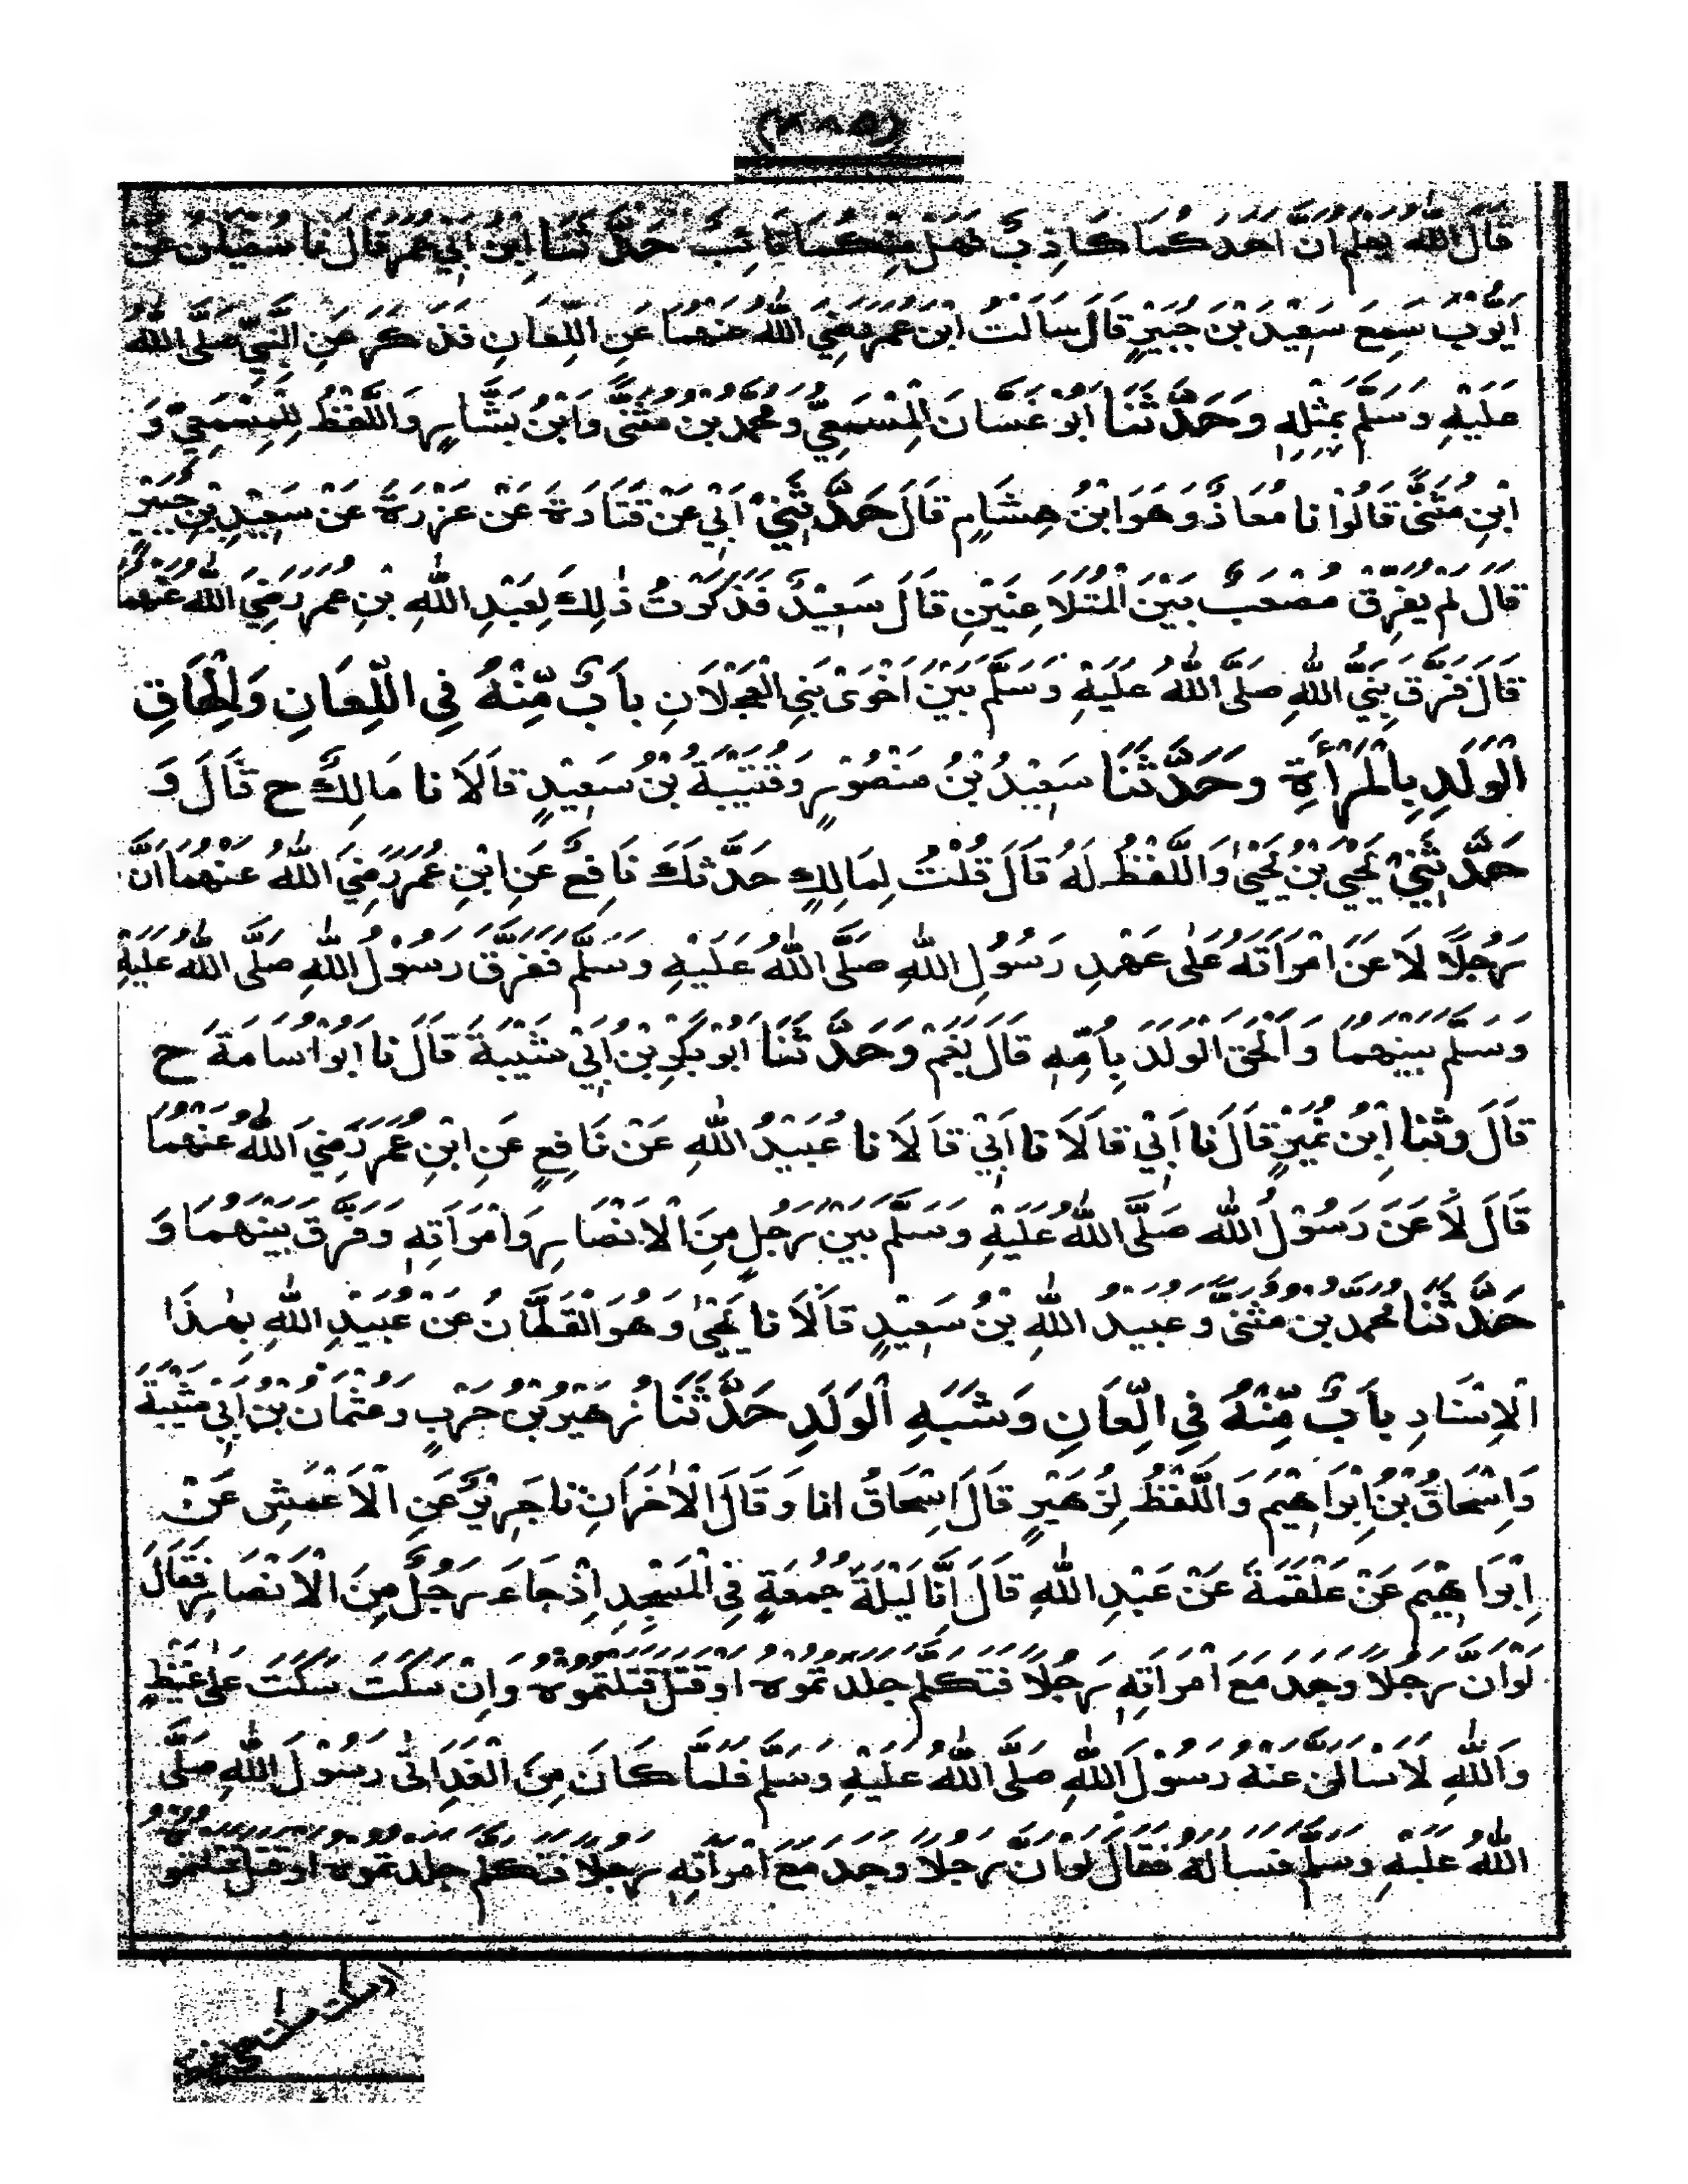 (٢٨٥)
قَالَ اللّٰهُ يَعْلَمُ اَنَّ اَحَدَكُمَا كَاذِبٌ فَهَلْ مِنْكُمَا تَائِبٌ حَدَّثَنَا ابْنُ اَبِيْ عُمَرَ قَالَ نَا سُفْيَانُ عَنْ
اَيُّوْبَ سَمِعَ سَعِيْدَ بْنَ جُبَيْرٍ قَالَ سَاَلْتُ ابْنَ عُمَرَ رَضِيَ اللّٰهُ عَنْهُمَا عَنِ اللِّعَانِ فَذَكَرَ عَنِ النَّبِيِّ صَلَّى اللّٰهُ
عَلَيْهِ وَسَلَّمَ بِمِثْلِهِ وَحَدَّثَنَا اَبُوْ غَسَّانَ الْمِسْمَعِيُّ وَمُحَمَّدُ بْنُ مُثَنَّى وَابْنُ بَشَّارٍ وَاللَّفْظُ لِلْمِسْمَعِيِّ وَ
ابْنِ مُثَنَّى قَالُوْا نَا مُعَاذٌ وَهُوَ ابْنُ هِشَامٍ قَالَ حَدَّثَنِيْ اَبِيْ عَنْ قَتَادَةَ عَنْ عَزْرَةَ عَنْ سَعِيْدِ بْنِ جُبَيْرٍ
قَالَ لَمْ يُفَرِّقْ مُصْعَبٌ بَيْنَ الْمُتَلَاعِنَيْنِ قَالَ سَعِيْدٌ فَذَكَرْتُ ذٰلِكَ لِعَبْدِ اللّٰهِ بْنِ عُمَرَ رَضِيَ اللّٰهُ عَنْهُمَا
قَالَ فَرَّقَ نَبِيُّ اللّٰهِ صَلَّى اللّٰهُ عَلَيْهِ وَسَلَّمَ بَيْنَ اَخَوَىْ بَنِي الْعَجْلَانِ بَابٌ مِّنْهُ فِي اللِّعَانِ وَاِلْحَاقِ
الْوَلَدِ بِالْمَرْأَةِ وَحَدَّثَنَا سَعِيْدُ بْنُ مَنْصُوْرٍ وَقُتَيْبَةُ بْنُ سَعِيْدٍ قَالَا نَا مَالِكٌ ح قَالَ وَ
حَدَّثَنِيْ يَحْيَى بْنُ يَحْيٰى وَاللَّفْظُ لَهُ قَالَ قُلْتُ لِمَالِكٍ حَدَّثَكَ نَافِعٌ عَنِ ابْنِ عُمَرَ رَضِيَ اللّٰهُ عَنْهُمَا اَنَّ
رَجُلًا لَاعَنَ امْرَاَتَهُ عَلٰى عَهْدِ رَسُوْلِ اللّٰهِ صَلَّى اللّٰهُ عَلَيْهِ وَسَلَّمَ فَفَرَّقَ رَسُوْلُ اللّٰهِ صَلَّى اللّٰهُ عَلَيْهِ
وَسَلَّمَ بَيْنَهُمَا وَاَلْحَقَ الْوَلَدَ بِاُمِّهِ قَالَ نَعَمْ وَحَدَّثَنَا اَبُوْ بَكْرِ بْنُ اَبِيْ شَيْبَةَ قَالَ نَا اَبُوْ اُسَامَةَ ح
قَالَ وَثَنَا ابْنُ نُمَيْرٍ قَالَ نَا اَبِيْ قَالَا نَا اَبِيْ قَالَا نَا عُبَيْدُ اللّٰهِ عَنْ نَافِعٍ عَنِ ابْنِ عُمَرَ رَضِيَ اللّٰهُ عَنْهُمَا
قَالَ لَاعَنَ رَسُوْلُ اللّٰهِ صَلَّى اللّٰهُ عَلَيْهِ وَسَلَّمَ بَيْنَ رَجُلٍ مِنَ الْاَنْصَارِ وَامْرَاَتِهِ وَفَرَّقَ بَيْنَهُمَا وَ
حَدَّثَنَا مُحَمَّدُ بْنُ مُثَنَّى وَعُبَيْدُ اللّٰهِ بْنُ سَعِيْدٍ قَالَا نَا يَحْيٰى وَهُوَ الْقَطَّانُ عَنْ عُبَيْدِ اللّٰهِ بِهٰذَا
الْاِسْنَادِ بَابٌ مِّنْهُ فِي الِّعَانِ وَشَبَهِ الْوَلَدِ حَدَّثَنَا زُهَيْرُ بْنُ حَرْبٍ وَعُثْمَانُ بْنُ اَبِيْ شَيْبَةَ
وَاِسْحَاقُ بْنُ اِبْرَاهِيْمَ وَاللَّفْظُ لِزُهَيْرٍ قَالَ اِسْحَاقُ انا وَقَالَ الْاٰخَرَانِ نَا جَرِيْرٌ عَنِ الْاَعْمَشِ عَنْ
اِبْرَاهِيْمَ عَنْ عَلْقَمَةَ عَنْ عَبْدِ اللّٰهِ قَالَ اِنَّا لَيْلَةَ جُمُعَةٍ فِي الْمَسْجِدِ اِذْ جَاءَ رَجُلٌ مِنَ الْاَنْصَارِ فَقَالَ
لَوْ اَنَّ رَجُلًا وَجَدَ مَعَ امْرَاَتِهِ رَجُلًا فَتَكَلَّمَ جَلَدْتُمُوْهُ اَوْ قَتَلَ قَتَلْتُمُوْهُ وَاِنْ سَكَتَ سَكَتَ عَلٰى غَيْظٍ
وَاللّٰهِ لَاَسْاَلَنَّ عَنْهُ رَسُوْلَ اللّٰهِ صَلَّى اللّٰهُ عَلَيْهِ وَسَلَّمَ فَلَمَّا كَانَ مِنَ الْغَدِ اَتٰى رَسُوْلَ اللّٰهِ صَلَّى
اللّٰهُ عَلَيْهِ وَسَلَّمَ فَسَاَلَهُ فَقَالَ لَوْ اَنَّ رَجُلًا وَجَدَ مَعَ امْرَاَتِهِ رَجُلًا فَتَكَلَّمَ جَلَدْتُمُوْهُ اَوْ قَتَلَ قَتَلْتُمُو